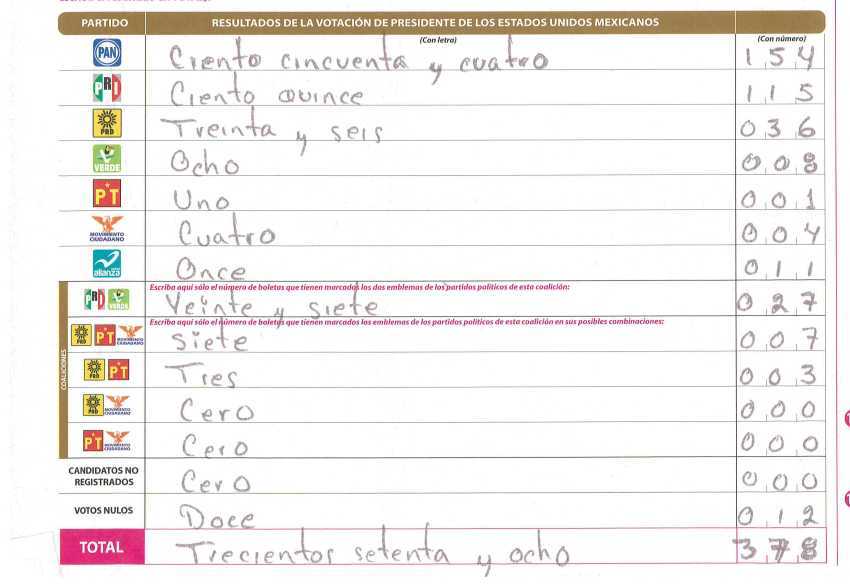 PARTIDO RESULTADOS DE LA VOTACIÓN DE PRESIDENTE DE LOS ESTADOS UNIDOS MEXICANOS
(Con letra) (Con número)
PAN Ciento cincuenta y cuatro 154
PRI Ciento quince 115
PRD Treinta y seis 036
VERDE Ocho 008
PT Uno 001
MOVIMIENTO CIUDADANO Cuatro 004
alianza Once 011
COALICIONES
Escriba aquí sólo el número de boletas que tienen marcados los dos emblemas de los partidos políticos de esta coalición:
PRI VERDE Veinte y siete 027
Escriba aquí sólo el número de boletas que tienen marcados los emblemas de los partidos políticos de esta coalición en sus posibles combinaciones:
PRD PT MOVIMIENTO CIUDADANO Siete 007
PRD PT Tres 003
PRD MOVIMIENTO CIUDADANO Cero 000
PT MOVIMIENTO CIUDADANO Cero 000
CANDIDATOS NO REGISTRADOS Cero 000
VOTOS NULOS Doce 012
TOTAL Trecientos setenta y ocho 378